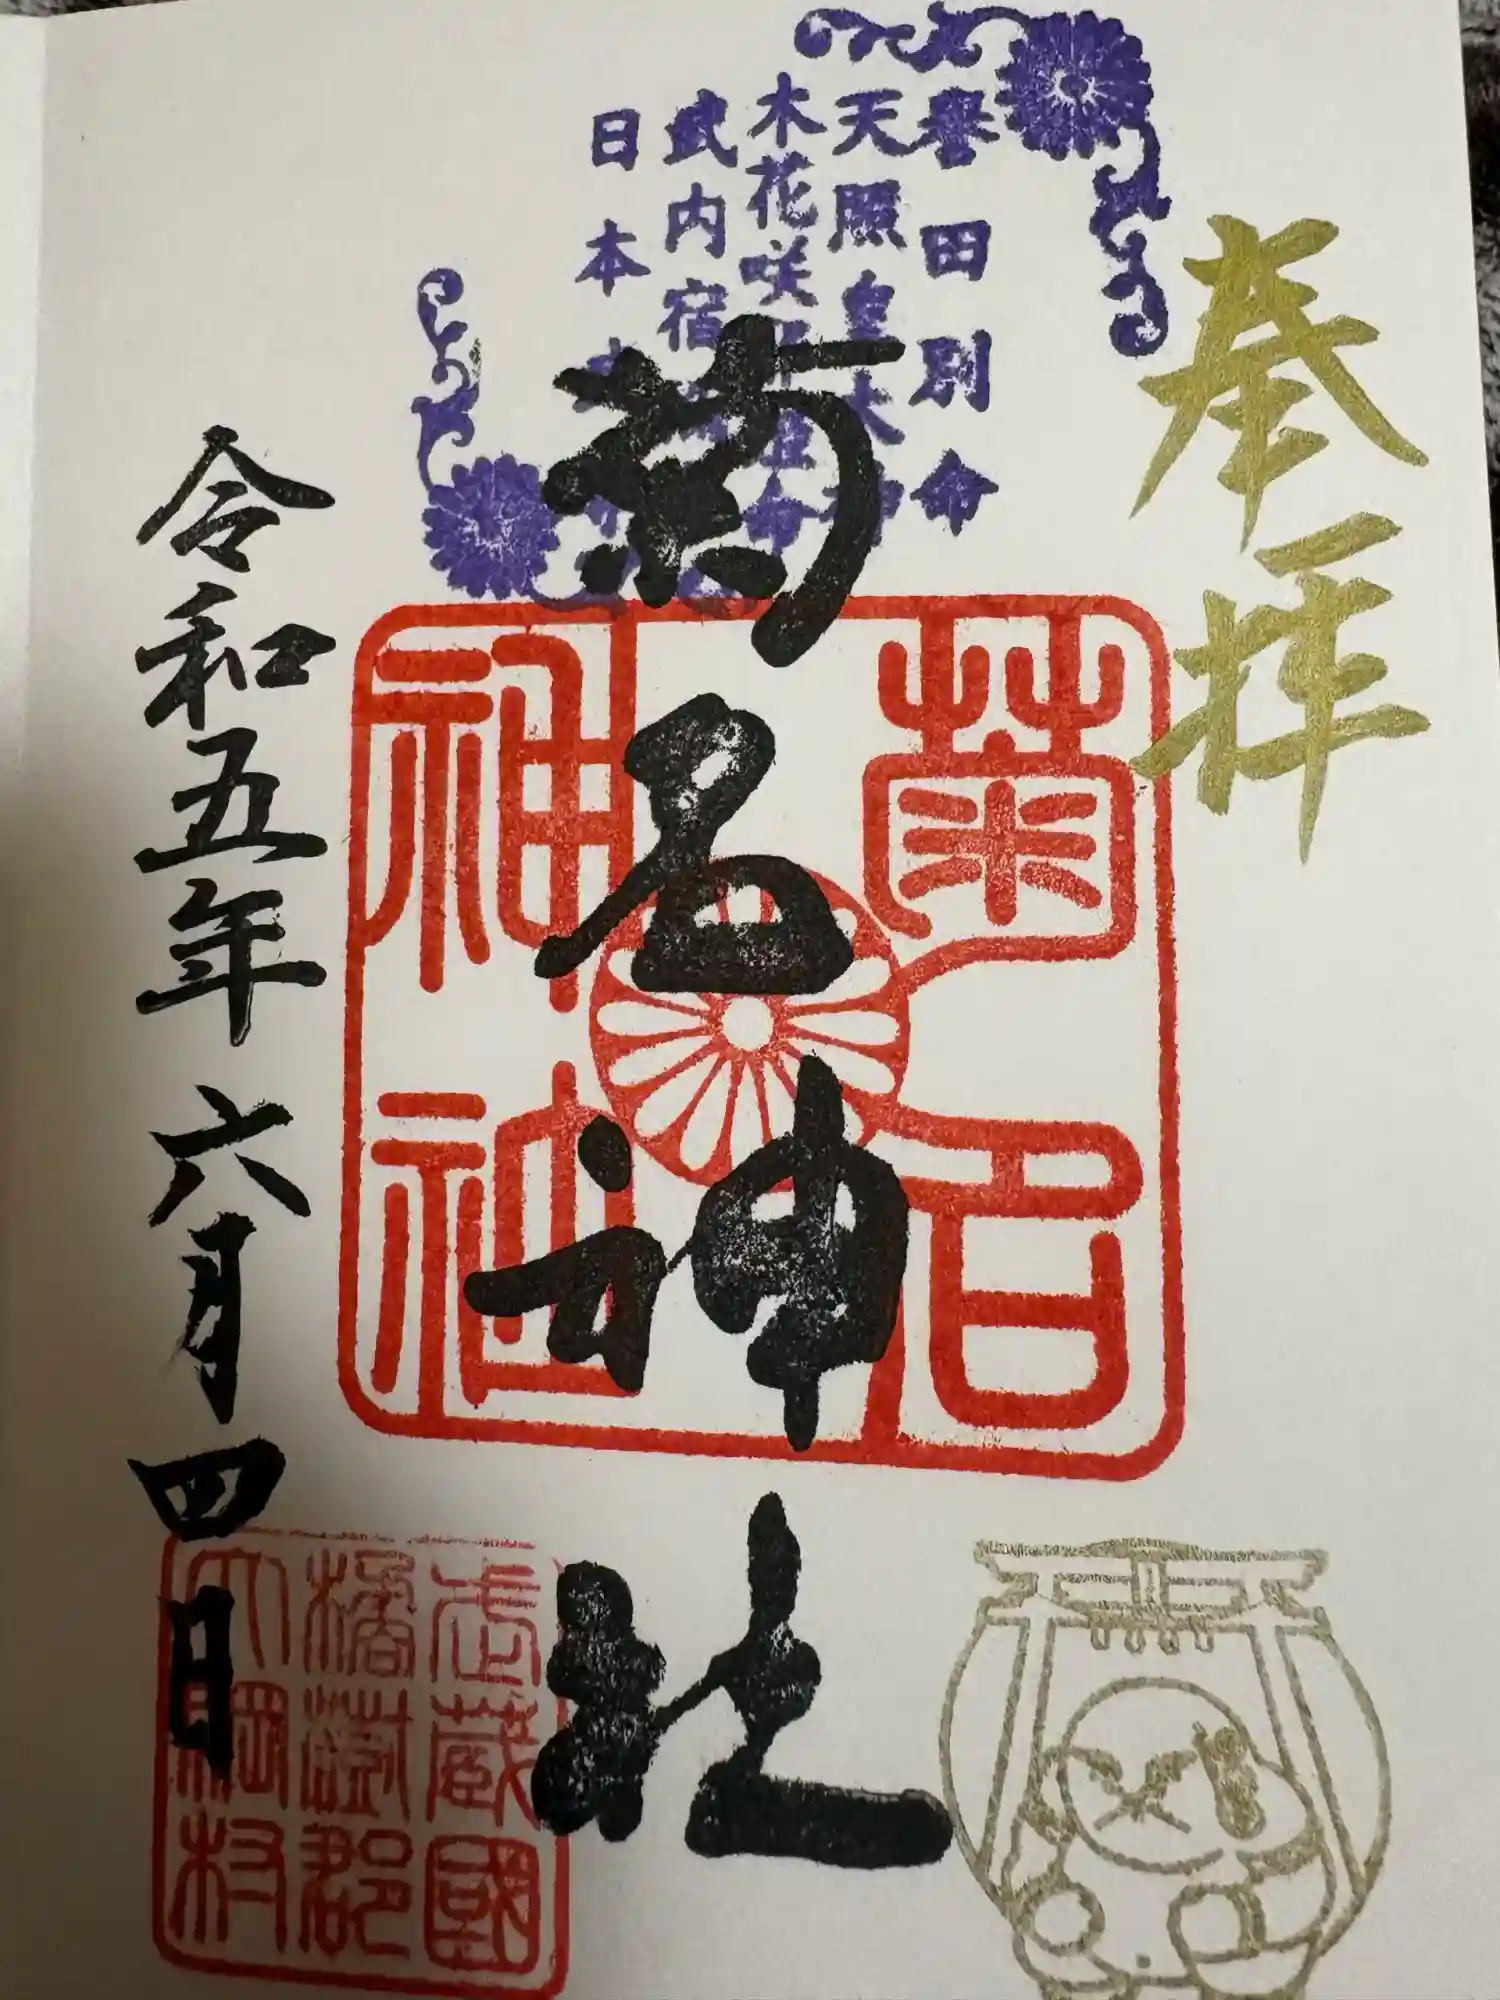 奉拝
誉田別命
天照皇大神
木花咲
武内宿
日本
菊名神社
菊名
神社
令和五年六月四日
武蔵國
橘樹郡
大綱村